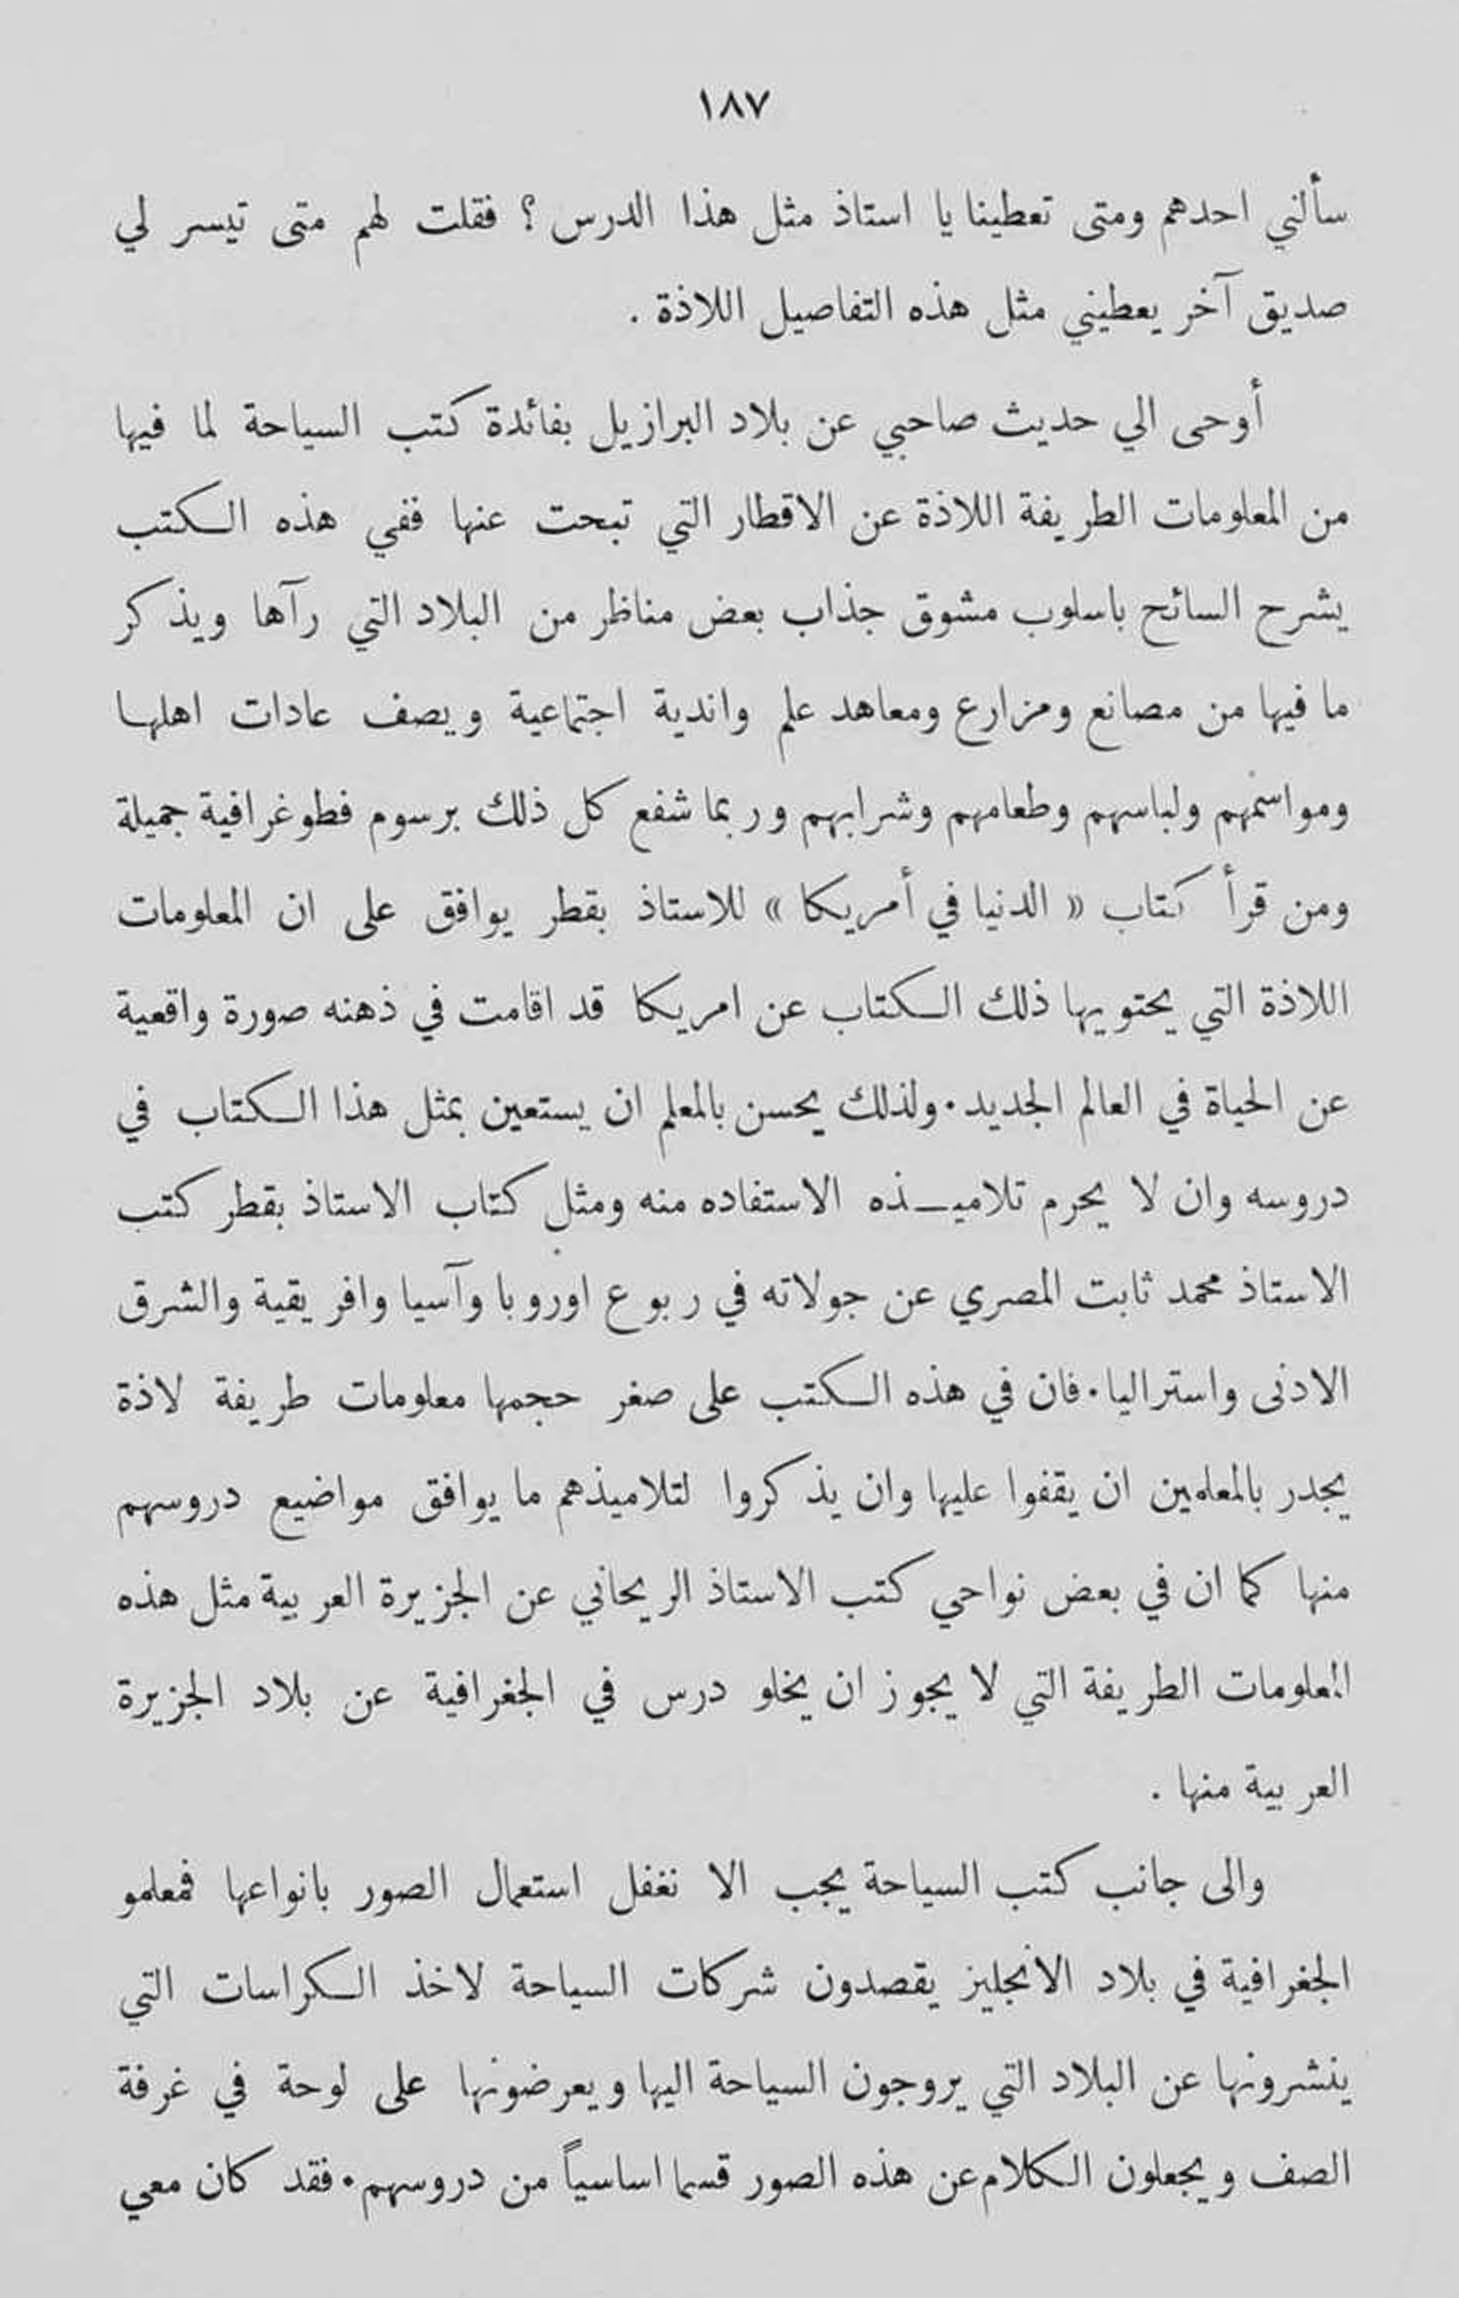 ١٨٧
سألني احدهم ومتى تعطينا يا استاذ مثل هذا الدرس ؟ فقلت لهم متى تيسر لي
صديق آخر يعطيني مثل هذه التفاصيل اللاذة .
أوحى الي حديث صاحبي عن بلاد البرازيل بفائدة كتب السياحة لما فيها
من المعلومات الطريفة اللاذة عن الاقطار التي تبحث عنها ففي هذه الكتب
يشرح السائح باسلوب مشوق جذاب بعض مناظر من البلاد التي رآها ويذكر
ما فيها من مصانع ومزارع ومعاهد علم واندية اجتماعية ويصف عادات اهلها
ومواسمهم ولباسهم وطعامهم وشرابهم وربما شفع كل ذلك برسوم فطوغرافية جميلة
ومن قرأ كتاب « الدنيا في أمريكا » للاستاذ بقطر يوافق على ان المعلومات
اللاذة التي يحتويها ذلك الكتاب عن امريكا قد اقامت في ذهنه صورة واقعية
عن الحياة في العالم الجديد . ولذلك يحسن بالمعلم ان يستعين بمثل هذا الكتاب في
دروسه وان لا يحرم تلاميـذه الاستفاده منه ومثل كتاب الاستاذ بقطر كتب
الاستاذ محمد ثابت المصري عن جولاته في ربوع اوروبا وآسيا وافريقية والشرق
الادنى واستراليا . فان في هذه الكتب على صغر حجمها معلومات طريفة لاذة
يجدر بالمعلمين ان يقفوا عليها وان يذكروا لتلاميذهم ما يوافق مواضيع دروسهم
منها كما ان في بعض نواحي كتب الاستاذ الريحاني عن الجزيرة العربية مثل هذه
المعلومات الطريفة التي لا يجوز ان يخلو درس في الجغرافية عن بلاد الجزيرة
العربية منها .
والى جانب كتب السياحة يجب الا نغفل استعمال الصور بانواعها فمعلمو
الجغرافية في بلاد الانجليز يقصدون شركات السياحة لاخذ الكراسات التي
ينشرونها عن البلاد التي يروجون السياحة اليها ويعرضونها على لوحة في غرفة
الصف ويجعلون الكلام عن هذه الصور قسما اساسياً من دروسهم . فقد كان معي